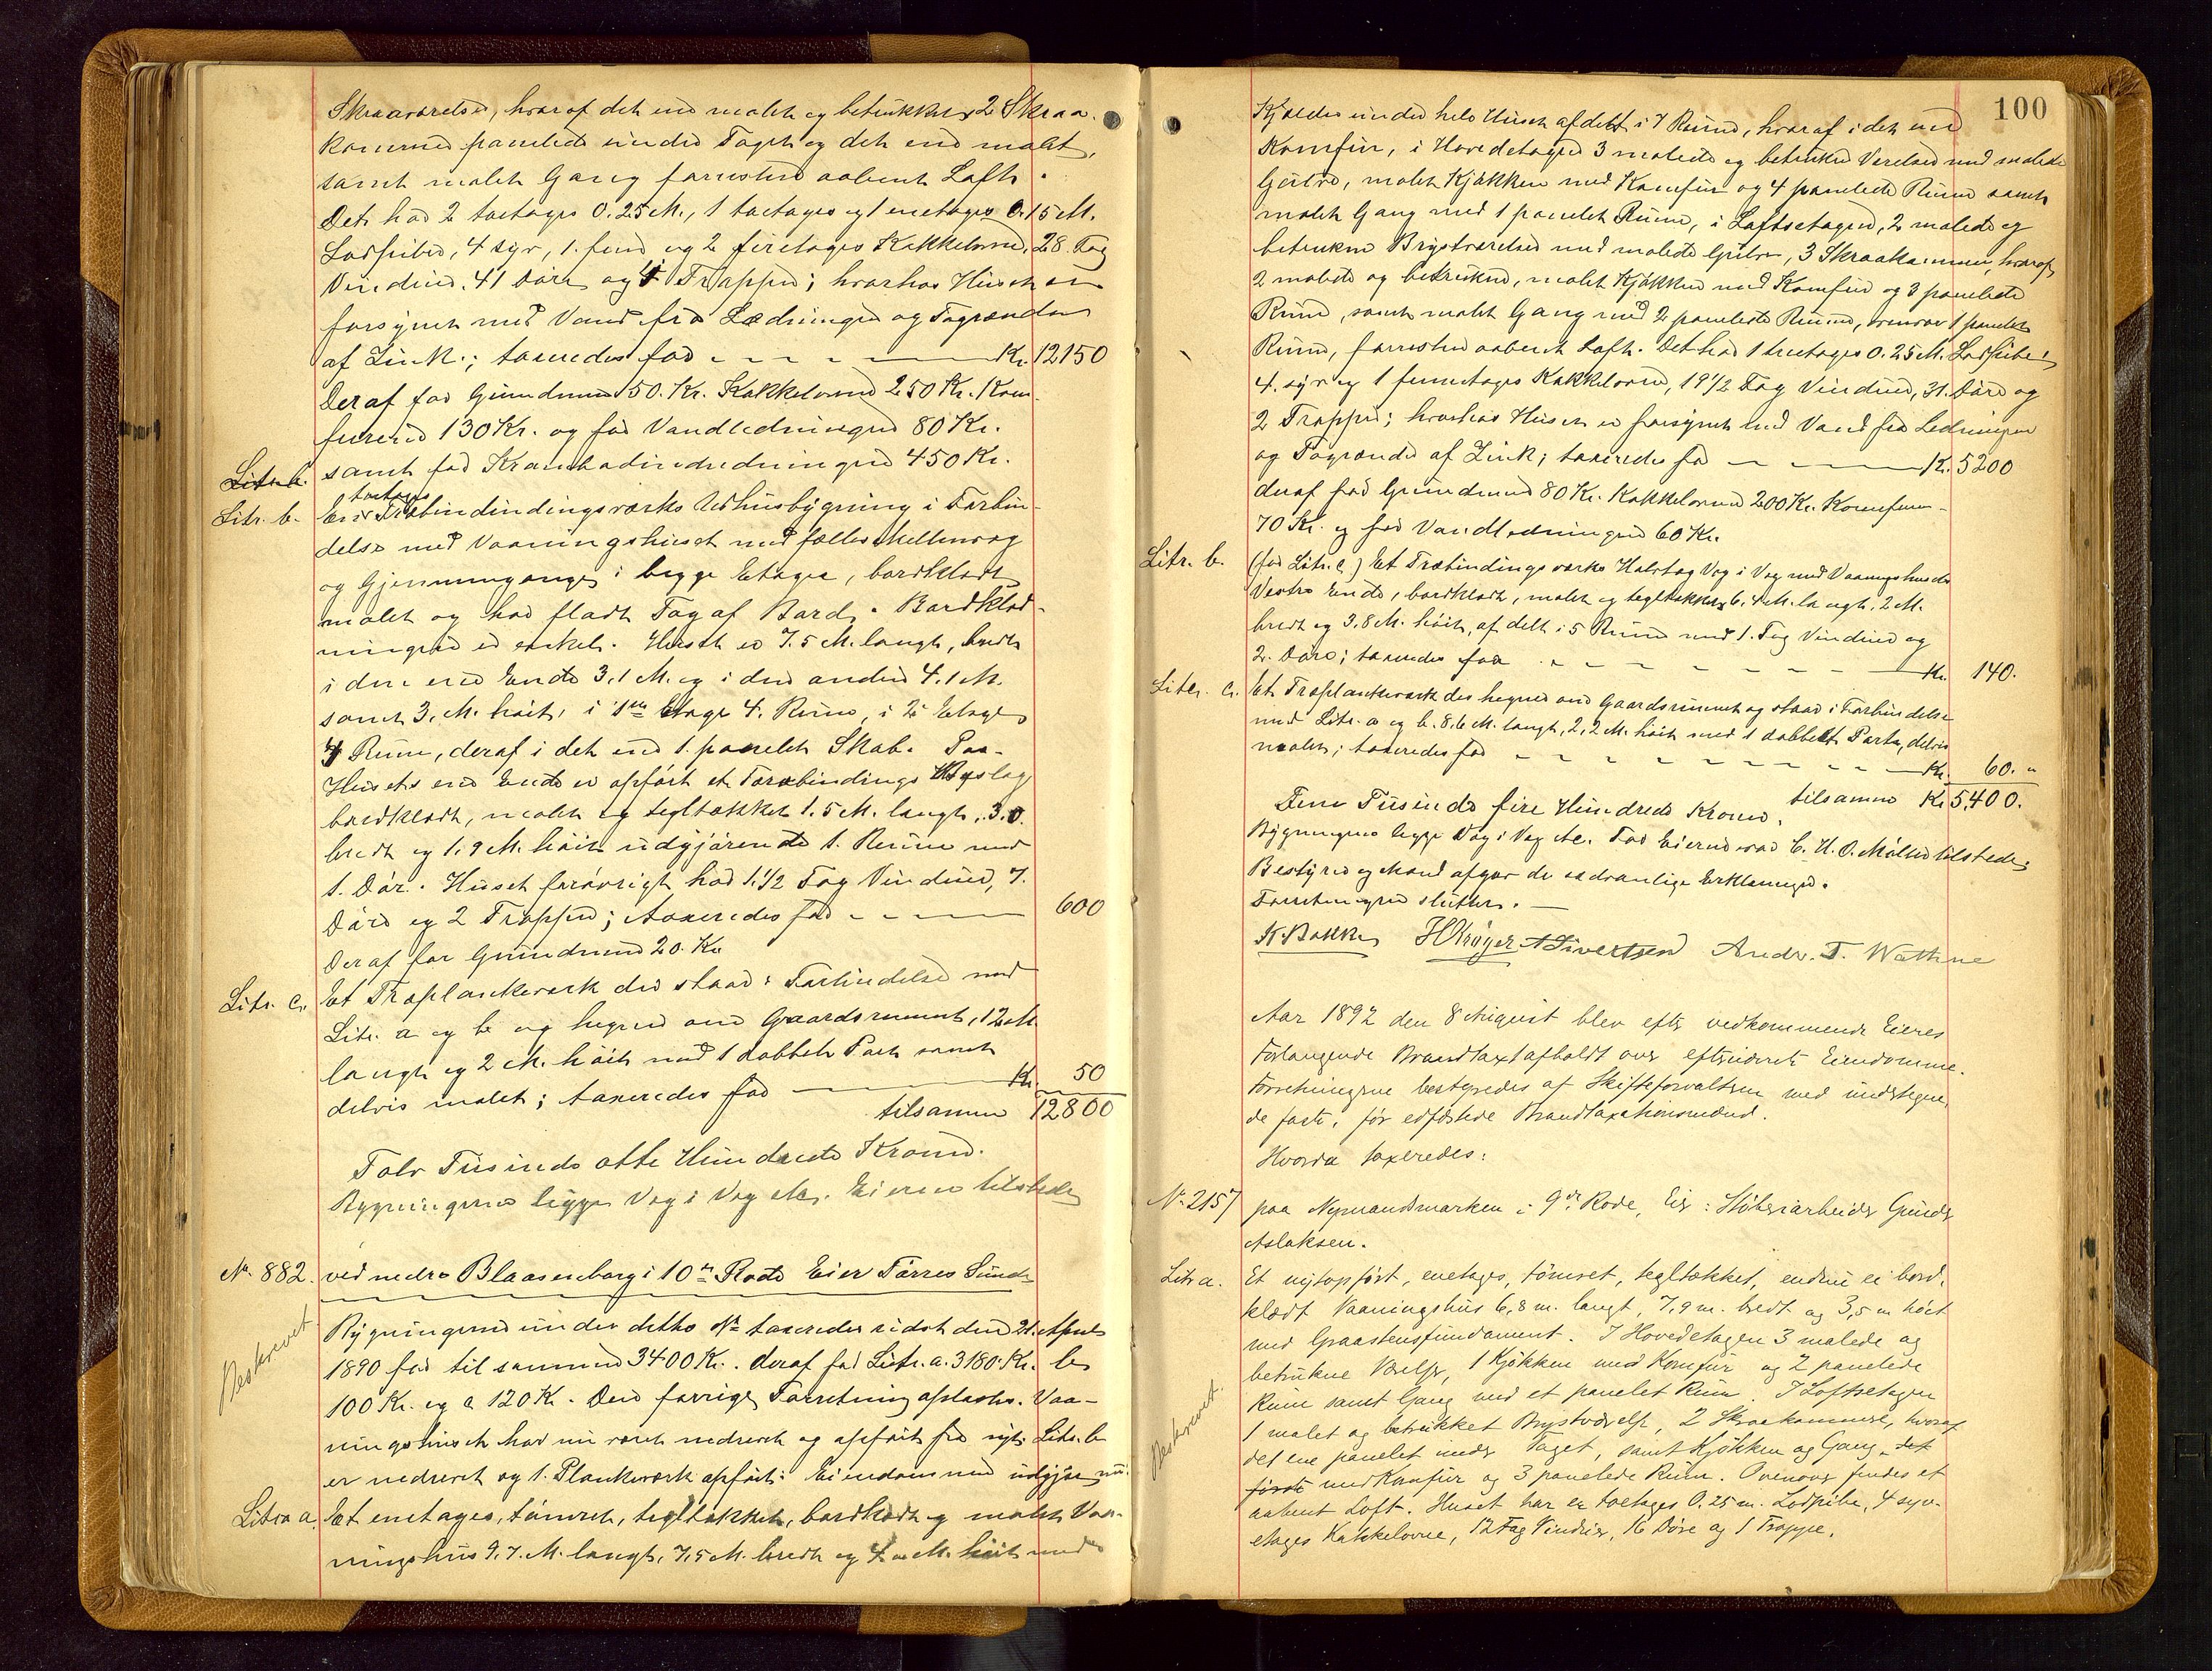 Skraaværelse, hvoraf det ene malet og betrukket, 2 Skraa-
kamere panelede under Taget og det ene malet,
samt malet Gang forresten aabent Loft.
Det har 2 toetages 0.25 M., 1 toetages og 1 enetages 0.15 M.
Lodpiber, 4 syv, 1. fem og 2 firetages Kakkelovne, 28. Fag
Vinduer. 41 Døre og 4 Trapper; hvorhos Huset er
forsynet med Vand fra Ledningen og Tagrender
af Zink.; taxeredes for Kr. 12150
Deraf for Grundmur 50. Kr. Kakkelovne 250 Kr. Kom-
furerne 130 Kr. og for Vandledningen 80 Kr.
samt for Krambodindredningen 450 Kr.
Litr. b.
toetages
Litr. b. En Træbindindingsværks Udhusbygning i Forbin-
delse med Vaaningshuset med fælles Mellemvæg
og Gjennemgange i begge Etager, bordklædt
malet og har fladt Tag af Bord. Bordklæd-
ningen er enkel. Huset er 7.5 M. langt, bredt
i den ene Ende 3,1 M. og i den anden 4.1 M.
samt 3. M. høit, i 1ste Etage 4. Rum, i 2de Etage
4 Rum, deraf i det ene 1. panelet Skab. Paa
Husets ene Ende er opført et Træbindings Udslag
bordklædt, malet og tegltækket 1.5 M. langt, 3.0
bredt og 1,9 M. høit udgjørende 1. Rum med
1. Dør. Huset forøvrigt har 1.1/2 Fag Vinduer, 7.
Døre og 2 Trapper; taxeredes for 600
Deraf for Grundmur 20. Kr.
Litr. c. Et Træplankeværk der staar i Forbindelse med
Litr. a og b og hegner om Gaardsrummet, 12 M.
langt og 2 M. høit med 1 dobbelt Port samt
delvis malet; taxeredes for Kr. 50
tilsamme 12800
Tolv Tusinde otte Hundrede Kroner.
Bygningerne ligge Væg i Væg etc. Eieren tilstede
No. 882. ved nedre Blaasenborg i 10de Rode Eier Tørres Sunde
Beskrevet
Bygningerne under dette No taxeredes sidst den 21. April
1890 for tilsammen 3400 Kr.. deraf for Litr. a. 3180. Kr. b
100 Kr. og c 120 Kr. Den forrige Forretning oplæstes. Vaa-
ningshuset har nu været nedrevet og opført fra nyt. Litr. b
er nedrevet og 1. Plankeværk opført: Eiendommen udgjør nu:
Litra a. Et enetages, tømret, tegltækket, bordklædt og malet Vaa-
ningshus 9.7. M. langt, 7,5 M. bredt og M. høit med
100
Kjælder under hele Huset afdelt i 7 Rum, hvoraf i det ene
Komfur, i Hovedetagen 3 malede og betrukne Værelser med malede
Gulve, malet Kjøkken med Komfur og 4 panelede Rum samt
malet Gang med 1 panelet Rum, i Loftsetagen, 2 malede og
betrukne Brystværelser med malede Gulve, 3 Skraakammer, hvoraf
2 malede og betrukne, malet Kjøkken med Komfur og 3 panelede
Rum, samt malet Gang med 2 panelede Rum, ovenover 1 panelet
Rum, forresten aabent Loft. Det har 1 toetages 0.25 M. Lodpibe,
4. syv og 1 femetages Kakkelovne, 19 1/2 Fag Vinduer, 31. Døre og
2 Trapper; hvorhos Huset er forsynet med Vand fra Ledningen
og Tagrender af Zink; taxeredes for Kr. 5200
deraf for Grundmur 80 Kr. Kakkelovne 200 Kr. Komfurer
70 Kr. og for Vandledningen 60 Kr.
Litr. b. (før Litr. c) Et Træbindingsværks Halvtag Væg i Væg med Vaaningshusets
Vestre Ende, bordklædt, malet og tegltækket, 6,4 M. langt, 2 M.
bredt og 3.8 M. høit, afdelt i 5 Rum med 1. Fag Vinduer og
2. Døre; taxeredes for Kr. 140.
Litr. c. Et Træplankeværk der hegner om Gaardsrummet og staar i Forbindelse
med Litr. a og b. 8,6 M. langt, 2,2 M. høit med 1 dobbelt Port, delvis
malet; taxeredes for Kr. 60. "
tilsamme Kr 5,400.
Fem Tusinde fire Hundrede Kroner.
Bygningerne ligge Væg i Væg etc. For Eieren var C. U. O. Møller tilstede,
Bestyrer og Mænd afgav de sædvanlige Erklæringer.
Forretningen sluttet. —
K. Bakke HKrøger ASivertsen Andr. T. Wathne
Aar 1892 den 8 August blev efter vedkommende Eieres
Forlangende Brandtaxt afholdt over efternævnte Eiendomme.
Forretningerne bestyredes af Skifteforvalteren med undertegne-
de faste, før edfæstede Brandtaxationsmænd.
Hvorda taxeredes:
No. 2157 paa Nymandsmarken i 9de Rode, Eier: Støberiarbeider Gunder
Aslaksen.
Litr a. Et nytopført, enetages, tømret, tegltækket, endnu ei bord-
klædt Vaaningshus 6,8 m. langt, 7,9 m. bredt og 3,5 m høit
med Graastensfundament. I Hovedetagen 3 malede og
betrukne Værelser, 1 Kjøkken med Komfur og 2 panelede
Rum samt Gang med et panelet Rum. I Loftsetagen
Beskrevet.
1 malet og betrukket Brystværelse, 2 Skraakammere, hvoraf
det ene panelet under Taget, samt Kjøkken og Gang, det
første med Komfur og 3 panelede Rum. Ovenover findes et
aabent Loft. Huset har en toetages 0.25 m. Lodpibe, 4 syv-
etages Kakkelovne, 12 Fag Vinduer, 16 Døre og 1 Trappe.